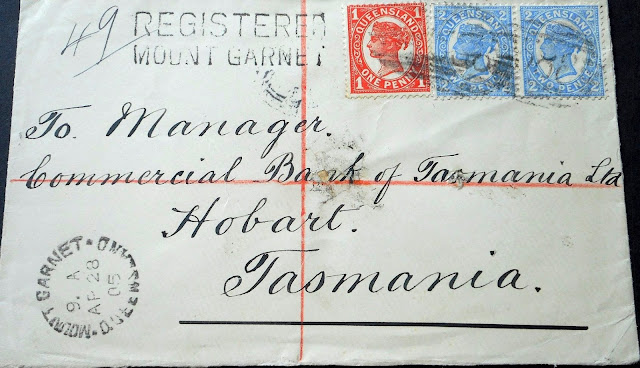 49
REGISTERED
MOUNT GARNET
QUEENSLAND
1 1
ONE PENNY
QUEENSLAND
2 2
TWO PENCE
QUEENSLAND
2 2
TWO PENCE
To. Manager.
Commercial Bank of Tasmania Ltd
Hobart.
Tasmania.
MOUNT GARNET • QUEENSLAND •
9. A
AP 28
05